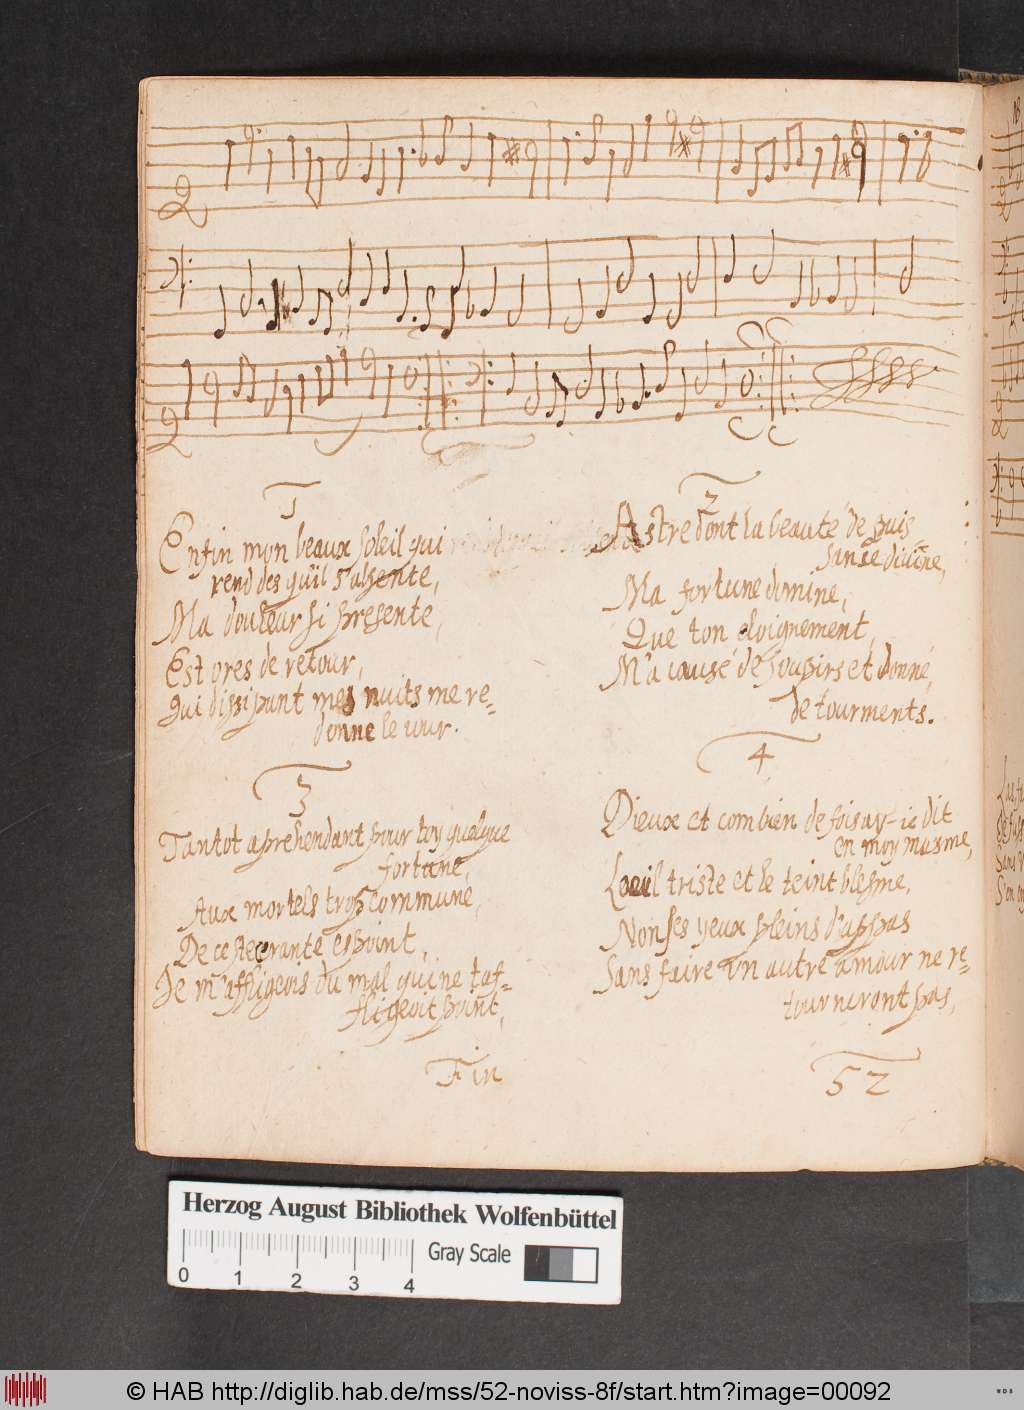 1
Enfin mon beaux soleil qui
rend des qu'il s'absente,
Ma douleur si presente,
Est ores de retour,
Qui dissipant mes nuits me re=
donne le iour.
2
Astre dont la beaute de puis=
sance divine,
Ma fortune domine,
Que ton eloignement,
M'a causé de soupirs et donné,
de tourments.
3
Tantot aprehendant pour toy quelque
fortune,
Aux mortels trop commune,
De ceste errante espoint,
Je m'affligeois du mal qui ne t'af=
fligeoit point,
4
Dieux et combien de fois ay-ie dit
en moy mesme,
L'oeil triste et le teint blesme,
Non ses yeux pleins d'appas
Sans faire un autre amour ne re=
tourneront pas,
Fin
52
Herzog August Bibliothek Wolfenbüttel
Gray Scale
0 1 2 3 4
© HAB http://diglib.hab.de/mss/52-noviss-8f/start.htm?image=00092